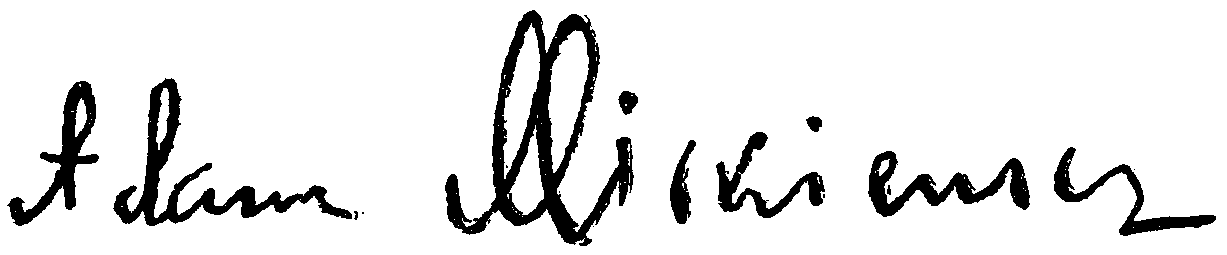 Adam Mickiewicz